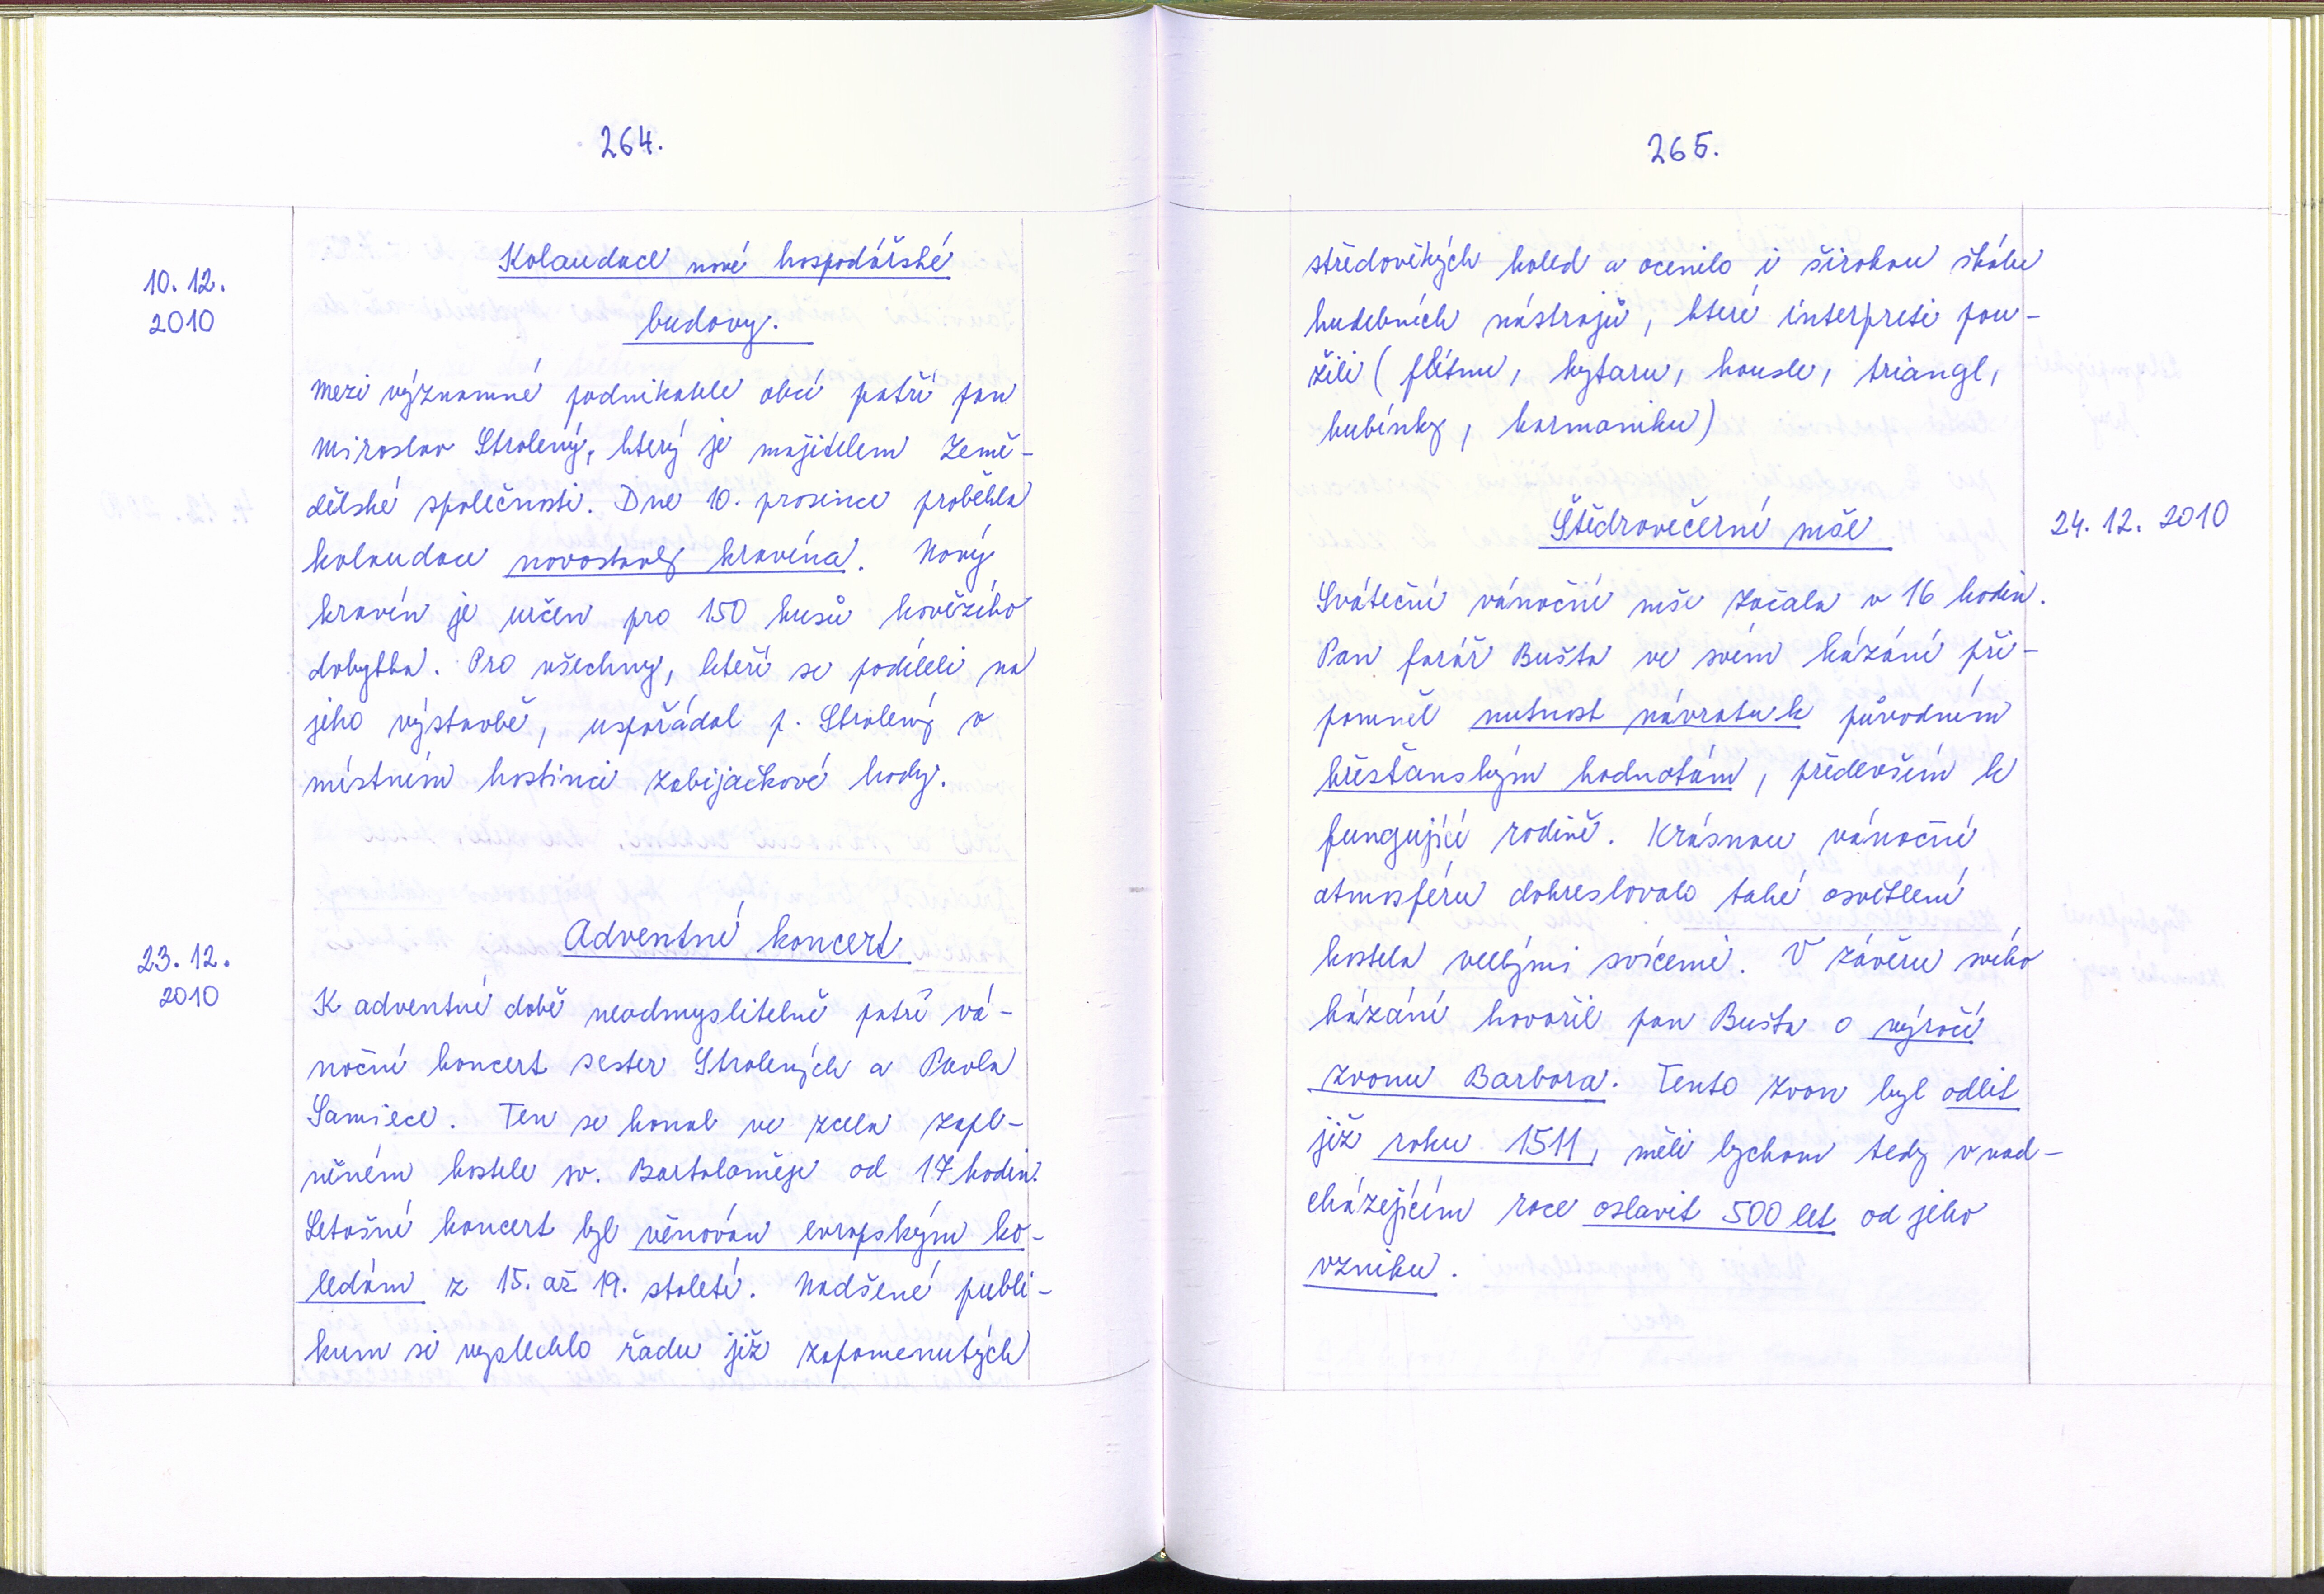 264.
10. 12.
2010
Kolaudace nové hospodářské
budovy.
Mezi významné podnikatele obcí patří pan
Miroslav Strolený, který je majitelem Země-
dělské společnosti. Dne 10. prosince proběhla
kolaudace novostavby kravína. Nový
kravín je určen pro 150 kusů hovězího
dobytka. Pro všechny, kteří se podíleli na
jeho výstavbě, uspořádal p. Strolený v
místním hostinci zabijačkové hody.
23. 12.
2010
Adventní koncert
K adventní době neodmyslitelně patří vá-
noční koncert sester Strolených a Pavla
Samiece. Ten se konal ve zcela zapl-
něném kostele sv. Bartoloměje od 17 hodin.
Letošní koncert byl věnován evropským ko-
ledám z 15. až 19. století. Nadšené publi-
kum si vyslechlo řadu již zapomenutých
265.
středověkých koled a ocenilo i širokou škálu
hudebních nástrojů, které interpreti pou-
žili (flétnu, kytaru, housle, triangl,
bubínky, harmoniku)
Štědrovečerní mše
24. 12. 2010
Sváteční vánoční mše začala v 16 hodin.
Pan farář Bušta ve svém kázání při-
pomněl nutnost návratu k původním
křesťanským hodnotám, především k
fungující rodině. Krásnou vánoční
atmosféru dokreslovalo také osvětlení
kostela velkými svícemi. V závěru svého
kázání hovořil pan Bušta o výročí
zvonu Barbora. Tento zvon byl odlit
již roku 1511, měli bychom tedy v nad-
cházejícím roce oslavit 500 let od jeho
vzniku.